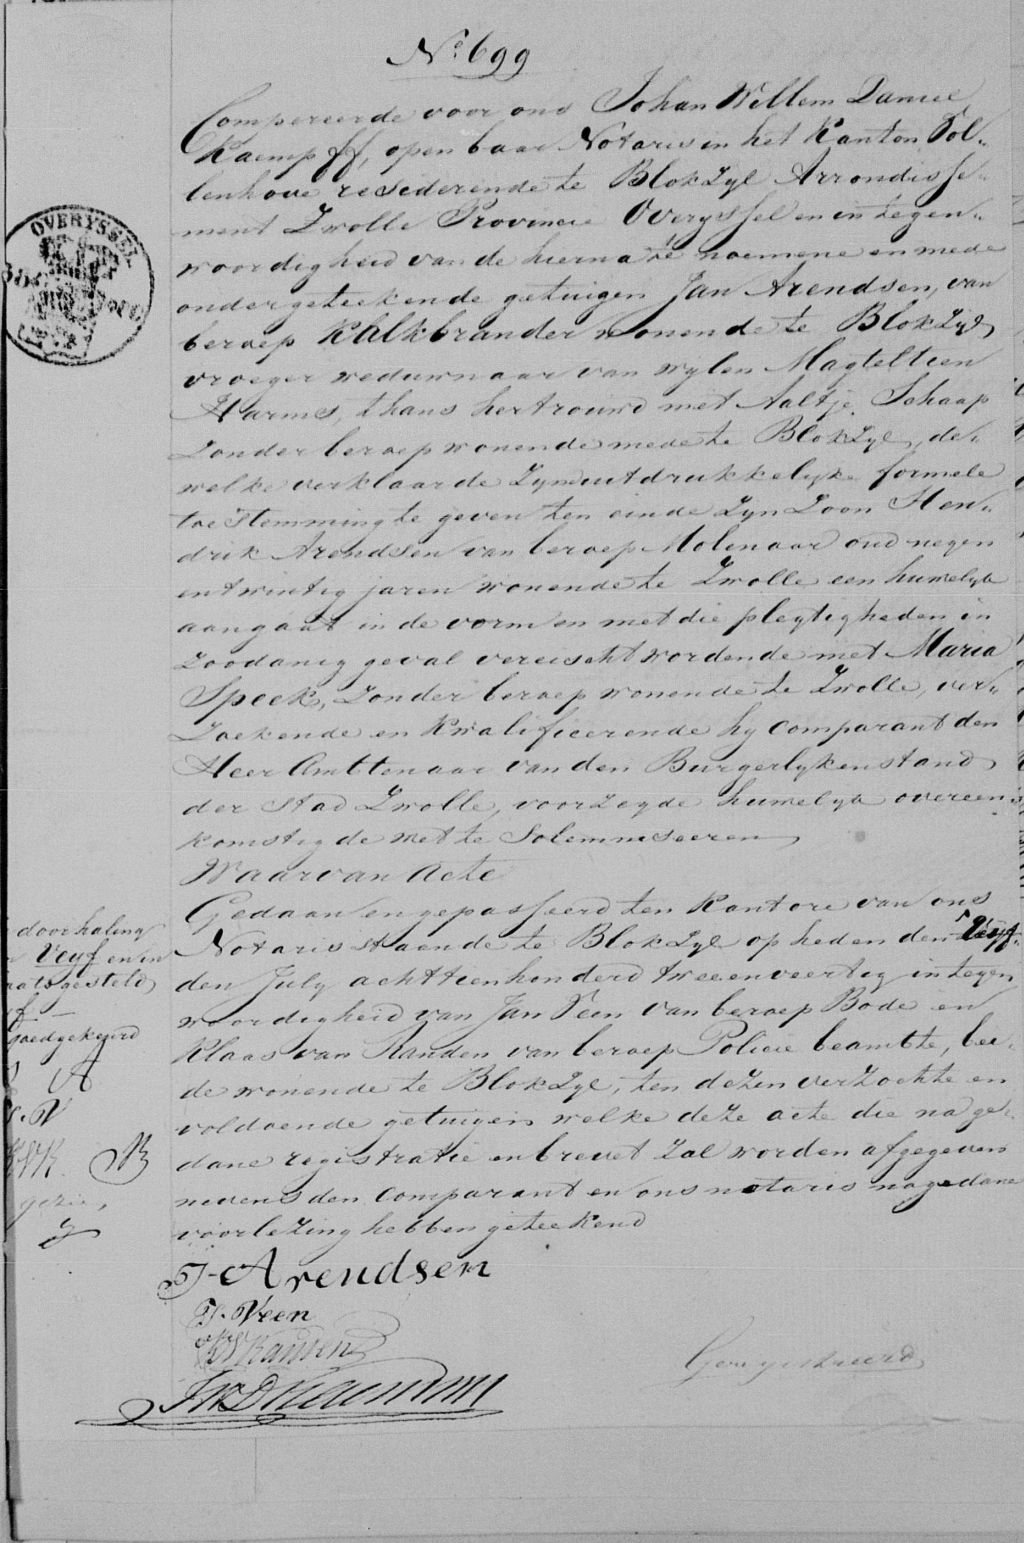 No 699
Compareerde voor ons Johan Willem Daniel
Kaempff, openbaar Notaris in het Kanton Vol„
lenhove resideerende te Blokzyl Arrondisse„
ment Zwolle Provincie Overyssel en in tegen„
woordigheid van de hierna te noemene en mede
ondergeteekende getuigen Jan Arendsen, van
beroep Kalkbrander wonende te Blokzyl
vroeger weduwnaar van wylen Magteltien
Harms, thans hertrouwd met Aaltje Schaap
zonder beroep wonende mede te Blokzyl, de„
welke verklaarde zyne uitdrukkelyke formele
toestemming te geven ten einde zyn Zoon Hen„
drik Arendsen van beroep Molenaar oud negen
entwintig jaren wonende te Zwolle een huwelyk
aangaat in de vorm en met die plegtigheden in
zoodanig geval vereischt wordende met Maria
Speek, zonder beroep wonende te Zwolle, ver„
zoekende en kwalificeerende hy comparant den
Heer Ambtenaar van den Burgerlyken stand
der stad Zwolle, voorzegde huwelyk overeen„
komstig de wet te Solemniseeren
Waarvan Acte
Gedaan en gepasseerd ten kantore van ons
Notaris staande te Blokzyl op heden den Veyf„
den July achttienhonderd tweeenveertig in tegen
woordigheid van Jan Veen van beroep Bode en
Klaas van Randen van beroep Policie beambte, bei„
de wonende te Blokzyl, ten dezen verzochte en
voldoende getuigen welke deze acte die na ge„
dane registratie en brevet zal worden afgegeven
nevens den comparant en ons notaris na gedane
voorlezing hebben geteekend
J. Arendsen
J. Veen
K V Randen
JWD Kaempff
Geregistreerd
OVERYSSEL
doorhaling
Veyf en in
aats gesteld
goedgekeurd
A
J. V
K V R